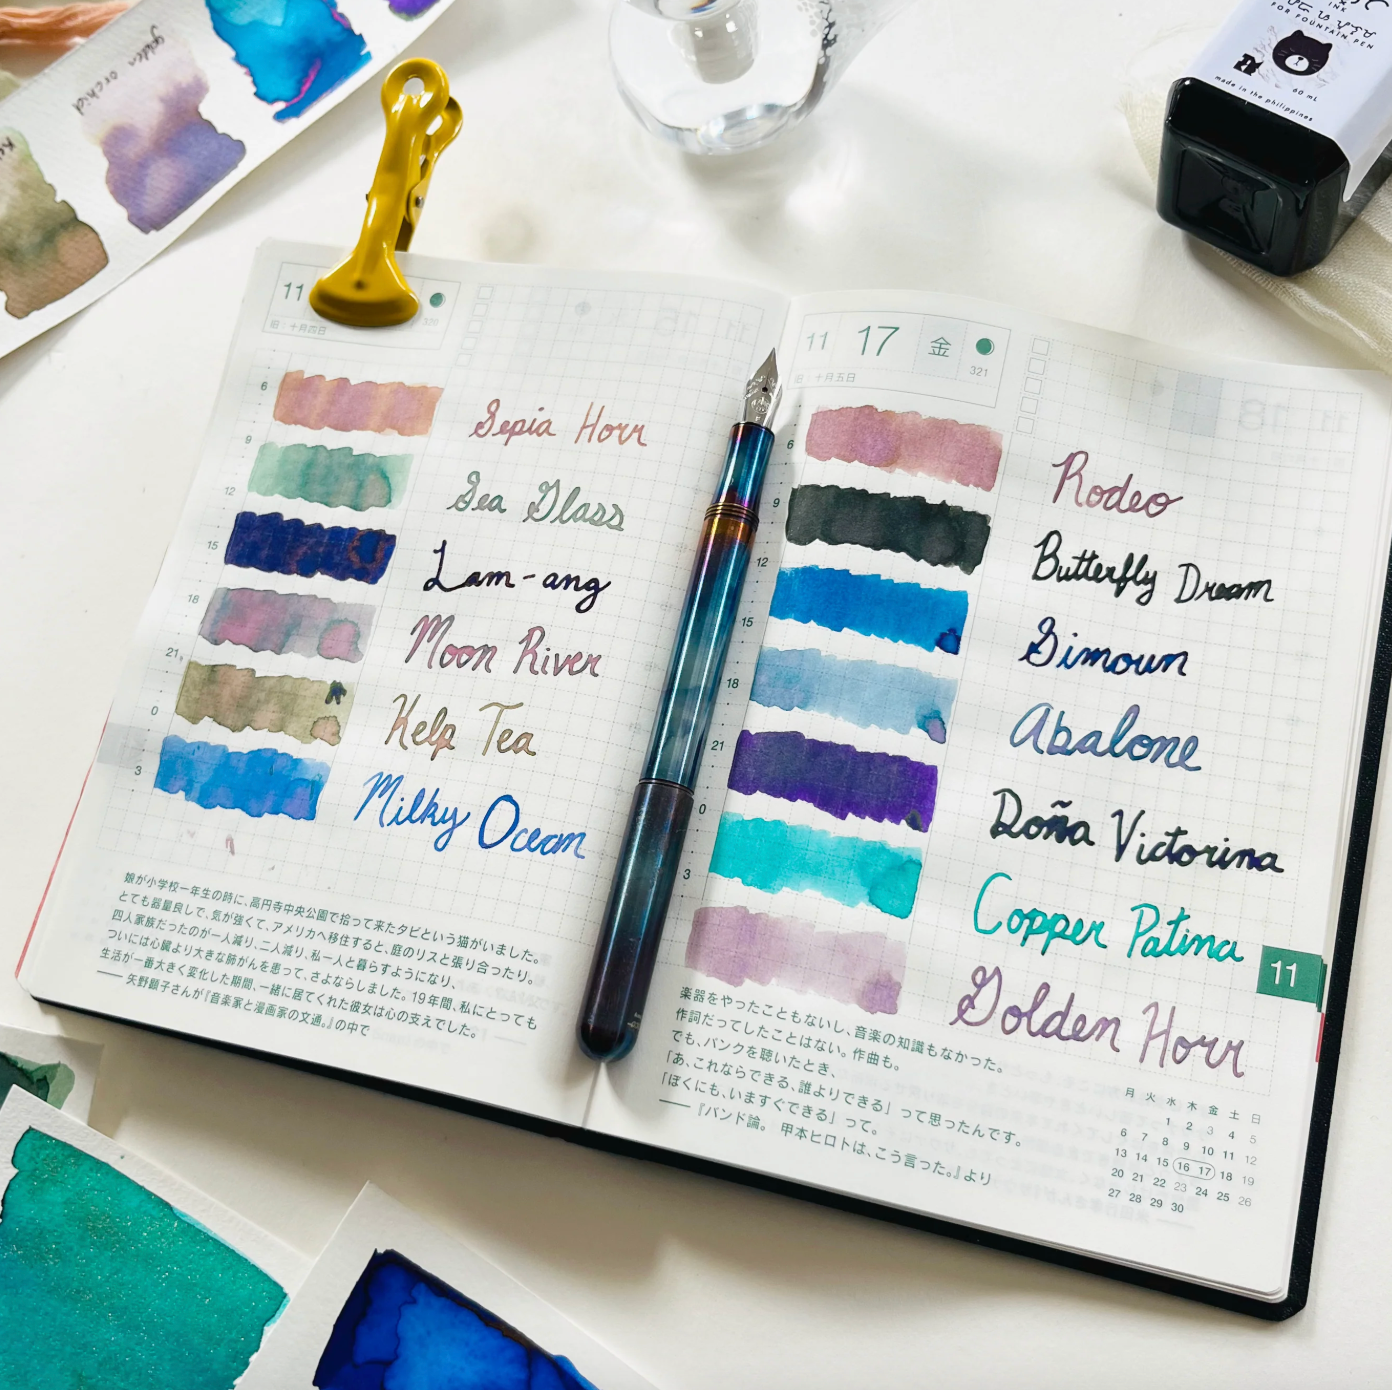 golden orchid
INK
FOR FOUNTAIN PEN
60 mL
made in the philippines
11
320
旧：十月四日
6
9
12
15
18
21
0
3
Sepia Horr
Sea Glass
Lam-ang
Moon River
Kelp Tea
Milky Ocean
娘が小学校一年生の時に、高円寺中央公園で拾って来たタビという猫がいました。
とても器量良しで、気が強くて、アメリカへ移住すると、庭のリスと張り合ったり。
四人家族だったのが一人減り、二人減り、私一人と暮らすようになり、
ついには心臓より大きな肺がんを患って、さよならしました。19年間、私にとっても
生活が一番大きく変化した期間、一緒に居てくれた彼女は心の支えでした。
—— 矢野顕子さんが『音楽家と漫画家の文通。』の中で
11 17 金
321
旧：十月五日
6
9
12
15
18
21
0
3
Rodeo
Butterfly Dream
Simoun
Abalone
Doña Victorina
Copper Patina
Golden Horr
11
楽器をやったこともないし、音楽の知識もなかった。
作詞だってしたことはない。作曲も。
でも、パンクを聴いたとき、
「あ、これならできる、誰よりできる」って思ったんです。
「ぼくにも、いますぐできる」って。
—— 『バンド論。 甲本ヒロトは、こう言った。』より
月 火 水 木 金 土 日
1 2 3 4 5
6 7 8 9 10 11 12
13 14 15 16 17 18 19
20 21 22 23 24 25 26
27 28 29 30